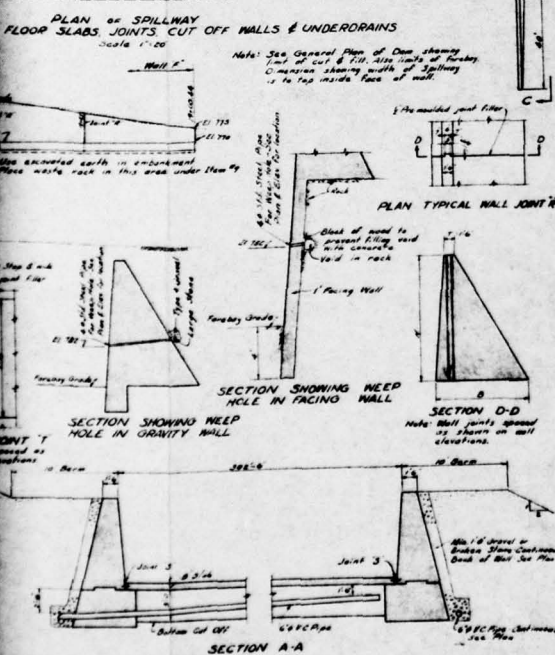 PLAN OF SPILLWAY
FLOOR SLABS, JOINTS, CUT OFF WALLS & UNDERDRAINS
Scale 1"=20'
Note: See General Plan of Dam showing
limit of cut & fill. Also limits of forebay.
Dimension showing width of Spillway
is to top inside face of wall.
Wall F
El. 773
El. 770
Use excavated earth in embankment
Place waste rock in this area under Item #9
Premoulded joint filler
D
D
C
PLAN TYPICAL WALL JOINT
Std. Steel Pipe
For Weep Hole See
Plan & Elev for location
Rock
Block of wood to
prevent filling void
with concrete
Void in rock
1' Facing Wall
Forebay Grade
SECTION SHOWING WEEP
HOLE IN FACING WALL
Std. Steel Pipe
For Weep Hole See
Plan & Elev for location
Large Stone
Forebay Grade
SECTION SHOWING WEEP
HOLE IN GRAVITY WALL
B
SECTION D-D
Note: Wall joints spaced
as shown on wall
elevations.
JOINT T
spaced as
10' Berm
302'-6"
10' Berm
Joint S
Joint S
Min. 1'6" Gravel or
Broken Stone Continuous
Back of Wall See Plan
Bottom Cut Off
6" V.C. Pipe
6" V.C. Pipe Continuous
See Plan
SECTION A-A